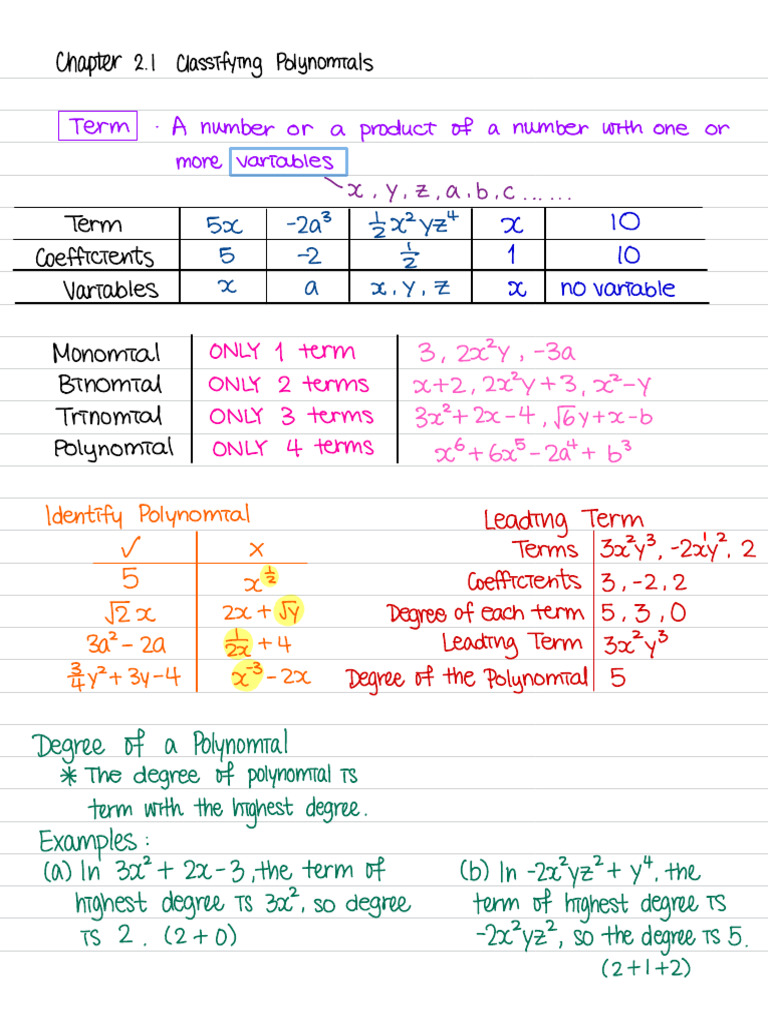 Chapter 2.1 Classifying Polynomials
Term · A number or a product of a number with one or
more variables
x, y, z, a, b, c ......
Term 5x -2a³ ½x²yz⁴ x 10
Coefficients 5 -2 ½ 1 10
Variables x a x, y, z x no variable
Monomial ONLY 1 term 3, 2x²y, -3a
Binomial ONLY 2 terms x+2, 2x²y+3, x²-y
Trinomial ONLY 3 terms 3x²+2x-4, √6y+x-b
Polynomial ONLY 4 terms x⁶+6x⁵-2a⁴+b³
Identify Polynomial
✓ x
5 x^½
√2 x 2x + √y
3a² - 2a 1/2x + 4
¾y² + 3y - 4 x⁻³ - 2x
Leading Term
Terms 3x²y³, -2x¹y², 2
Coefficients 3, -2, 2
Degree of each term 5, 3, 0
Leading Term 3x²y³
Degree of the Polynomial 5
Degree of a Polynomial
* The degree of polynomial is
term with the highest degree.
Examples:
(a) In 3x² + 2x - 3, the term of
highest degree is 3x², so degree
is 2. (2+0)
(b) In -2x²yz² + y⁴, the
term of highest degree is
-2x²yz², so the degree is 5.
(2+1+2)